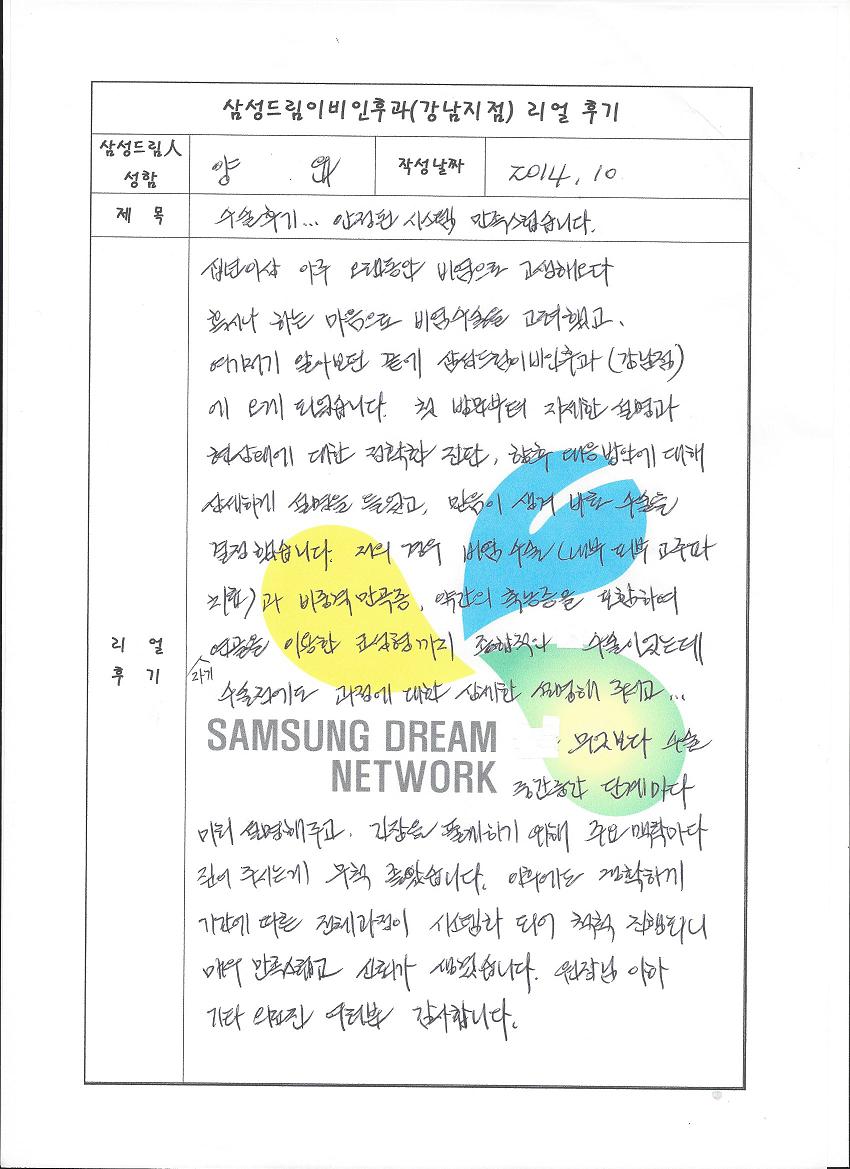 삼성드림이비인후과(강남지점) 리얼 후기
삼성드림人
성함
양
작성날짜
2014. 10
제 목
수술후기... 안정된 시스템, 만족스럽습니다.
십년이상 아주 오랫동안 비염으로 고생해오다
혹시나 하는 마음으로 비염수술을 고려했고,
여기저기 알아보던 끝에 삼성드림이비인후과 (강남점)
에 오게 되었습니다. 첫 방문부터 자세한 설명과
현상태에 대한 정확한 진단, 향후 대응방안에 대해
상세하게 설명을 들었고, 믿음이 생겨 바로 수술을
결정했습니다. 저의 경우 비염 수술 (내부 피부 고주파
치료)과 비중격 만곡증, 약간의 축농증을 포함하여
연골을 이용한 코성형까지 종합적인 수술이었는데
자가
수술전에도 과정에 대한 상세한 설명해 주시고...
SAMSUNG DREAM
NETWORK
무엇보다 수술
중간중간 단계마다
미리 설명해주고, 긴장을 풀게하기 위해 주요 맥락마다
짚어 주시는게 무척 좋았습니다. 이후에도 정확하게
기간에 따른 전체과정이 시스템화 되어 척척 진행되니
매우 만족스럽고 신뢰가 생겼습니다. 원장님 이하
기타 의료진 여러분 감사합니다.
리 얼
후 기